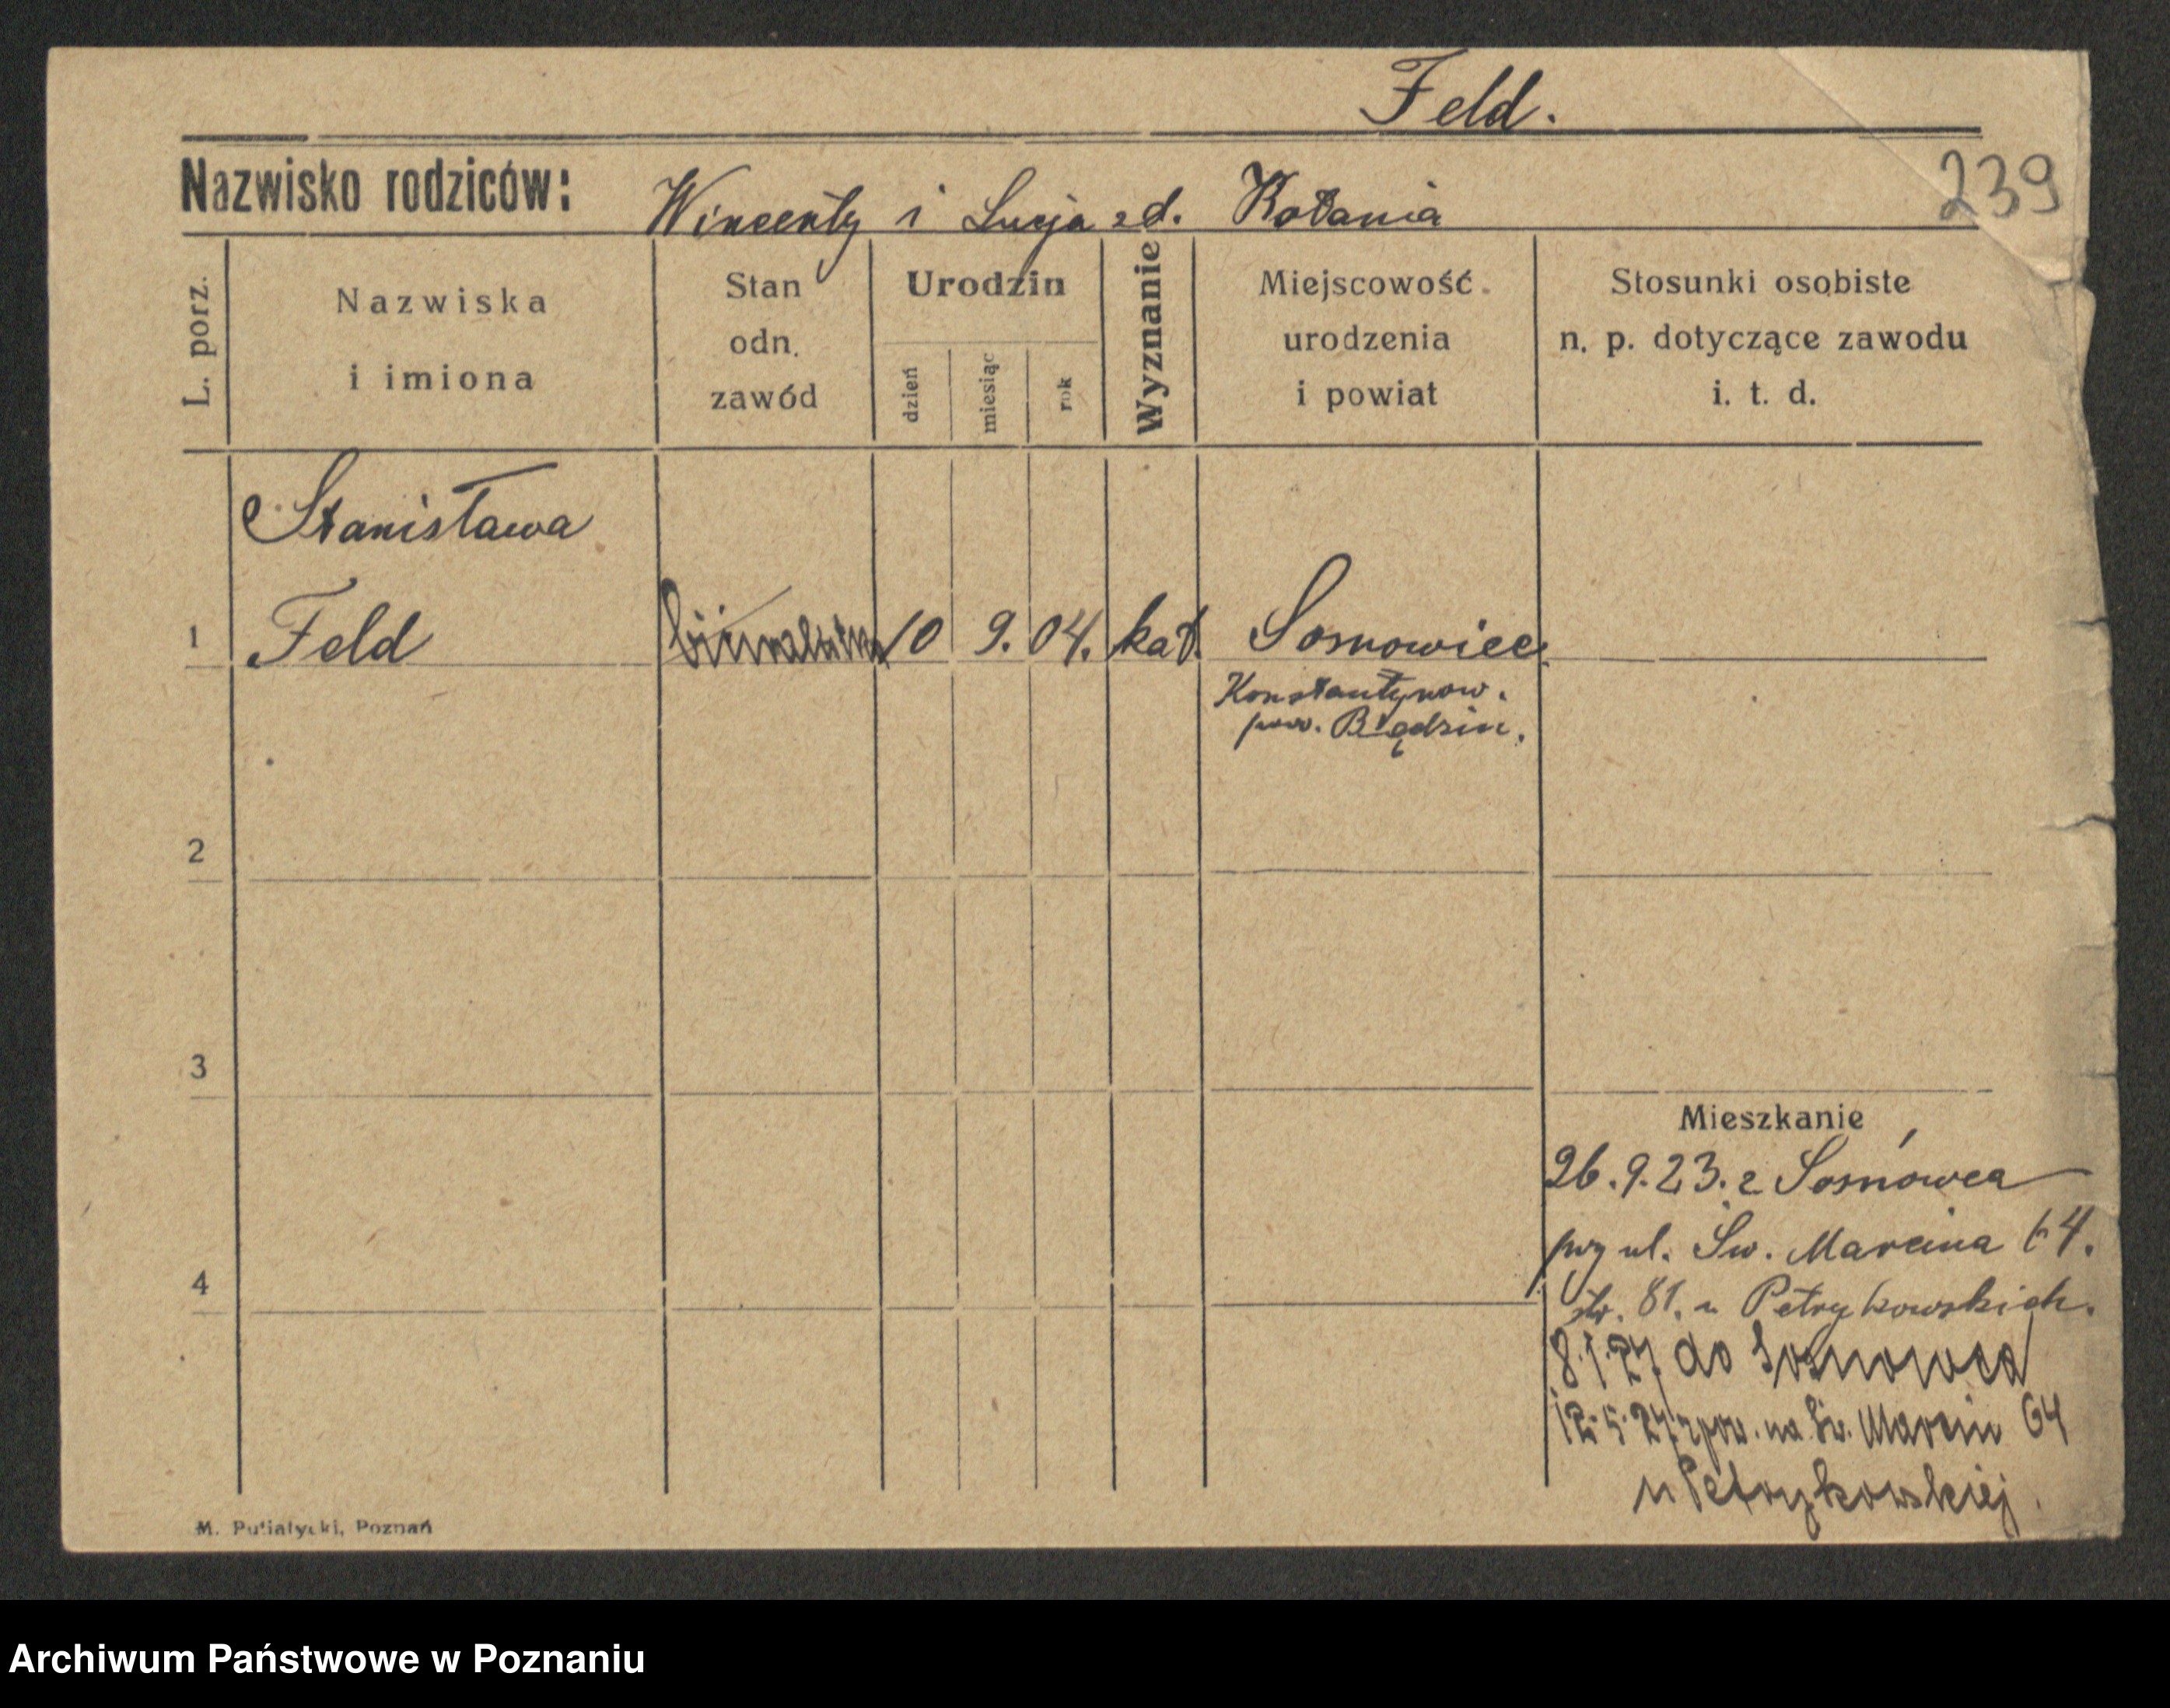 Feld.
239
Nazwisko rodziców: Wincenty i Lucja zd. Kotania
L. porz.
Nazwiska
i imiona
Stan
odn.
zawód
Urodzin
dzień
miesiąc
rok
Wyznanie
Miejscowość
urodzenia
i powiat
Stosunki osobiste
n. p. dotyczące zawodu
i. t. d.
Stanisława
1 Feld 10 9. 04. kat. Sosnowiec
Konstantynow.
pow. Będzin.
2
3
Mieszkanie
26.9.23. z Sosnowca
przy ul. Św. Marcina 64.
4
str. 81. u Petrykowskich.
do Sosnowca
na Św. Marcin 64
u Petrykowskiej
M. Putiatycki, Poznań
Archiwum Państwowe w Poznaniu